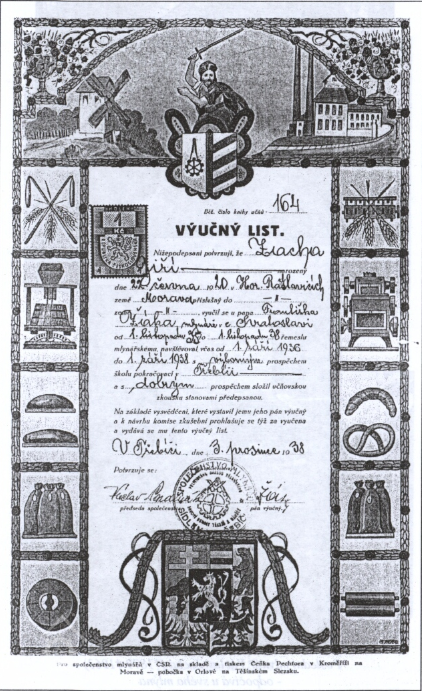 Běž. číslo knihy učňů 164
1
Kč
VÝUČNÝ LIST.
Nížepodepsaní potvrzují, že Zlacha
Jiří rozený
dne 22. června 1920 v Hor. Raslavicích
země Morava příslušný do -„-
země -„- vyučil se u pana Františka
mlynáře v
od 1. listopadu do 1. listopadu 38 řemeslu
mlynářskému, navštěvoval včas od 1. září 1936
do 1. září 1938 s výborným prospěchem
školu pokračovací v Třebíči
a s dobrým prospěchem složil učňovskou
zkoušku stanovami předepsanou.
Na základě vysvědčení, které vystavil jemu jeho pán výučný
a k návrhu komise zkušební prohlašuje se týž za vyučena
a vydává se mu tento výučný list.
V Třebíči, dne 3. prosince 1938
Potvrzuje se:
Václav
předseda společenstva pán výučný
společenstvo mlynářů v ČSR. na skladě a tiskem Čeňka Pechtora v Kroměříži na
Moravě — pobočka v Orlové na Těšínském Slezsku.